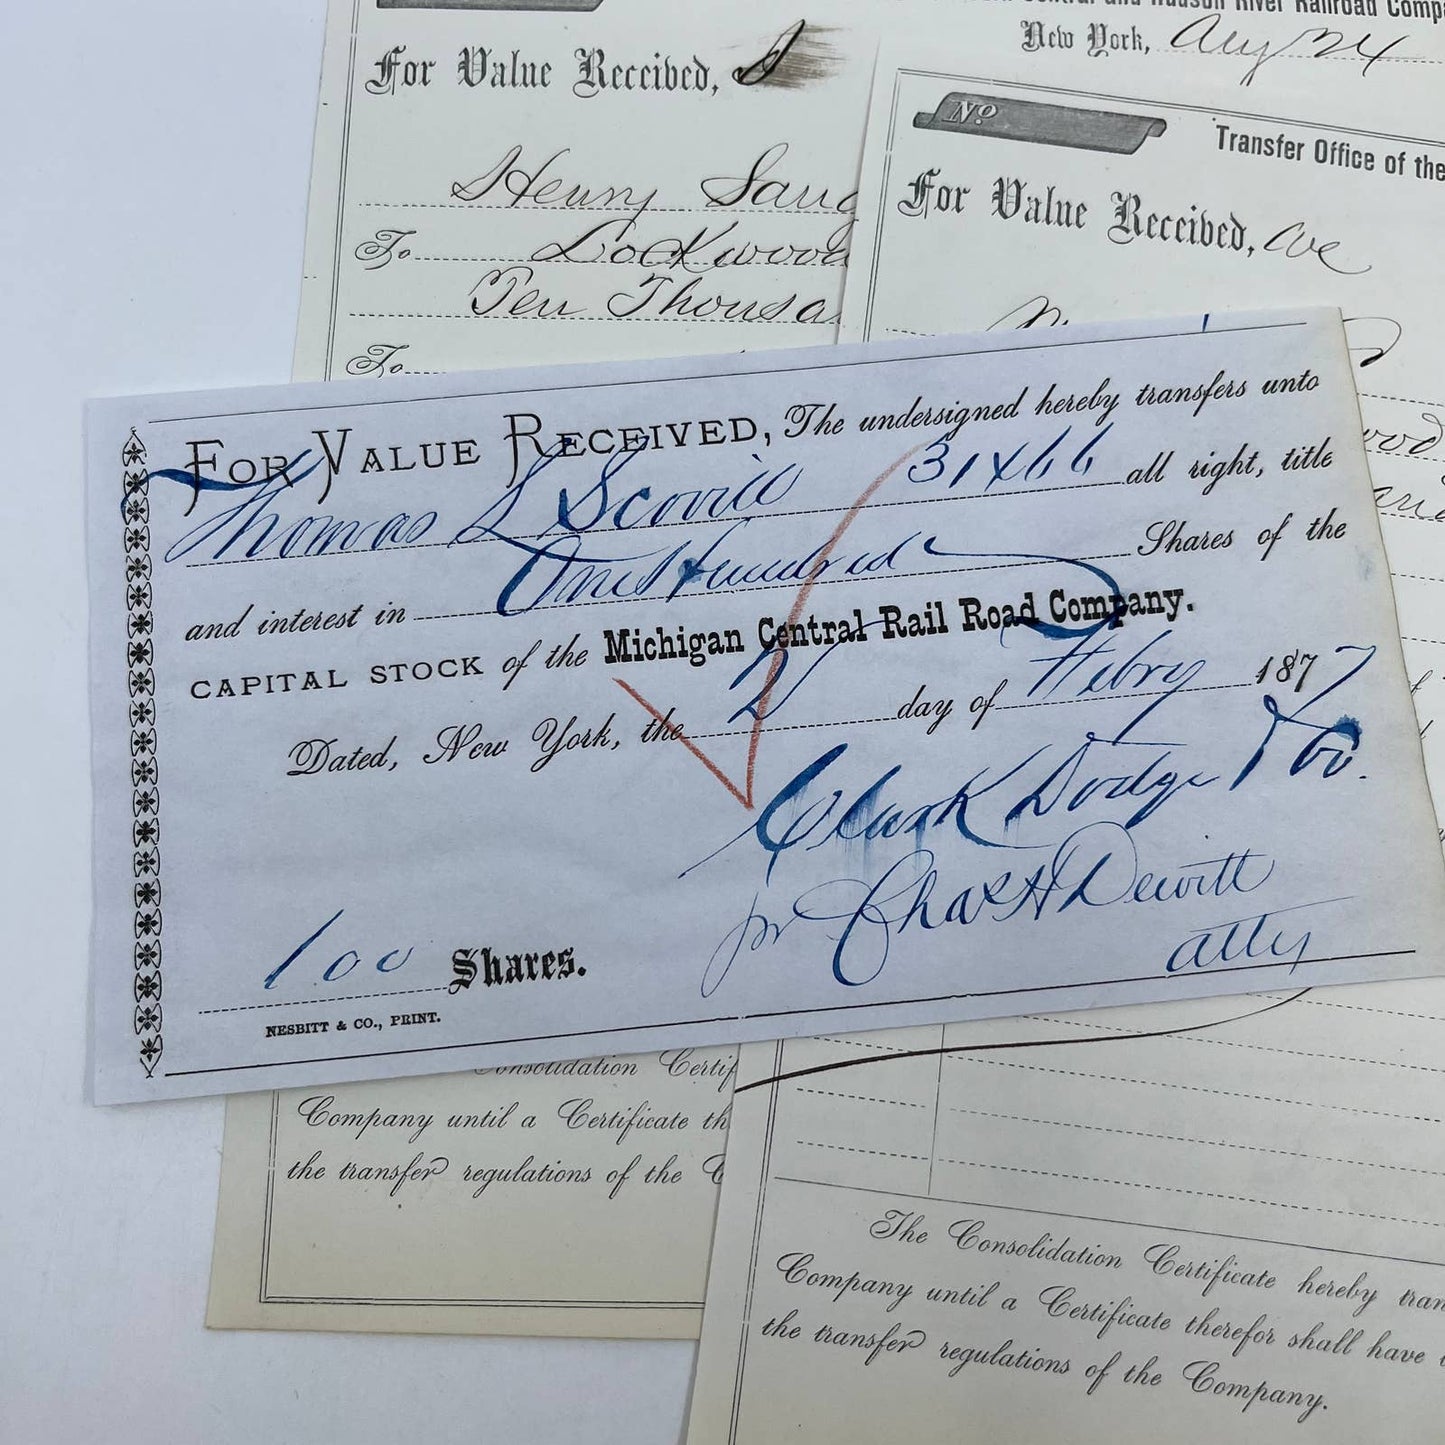 Central and Hudson River Railroad Comp
For Value Received, I
New York, Aug 24
Henry
To Lockwood
Ten Thousa
To
No
Transfer Office of the
For Value Received, we
FOR VALUE RECEIVED, The undersigned hereby transfers unto
Thomas L Scovill 31466 all right, title
and interest in One Hundred Shares of the
CAPITAL STOCK of the Michigan Central Rail Road Company.
Dated, New York, the 2 day of Febry 1877
Clark Dodge & Co.
pr Chas H Dewitt
atty
100 Shares.
NESBITT & CO., PRINT.
Consolidation Certif
Company until a Certificate th
the transfer regulations of the C
The Consolidation Certificate hereby tran
Company until a Certificate therefor shall have
the transfer regulations of the Company.